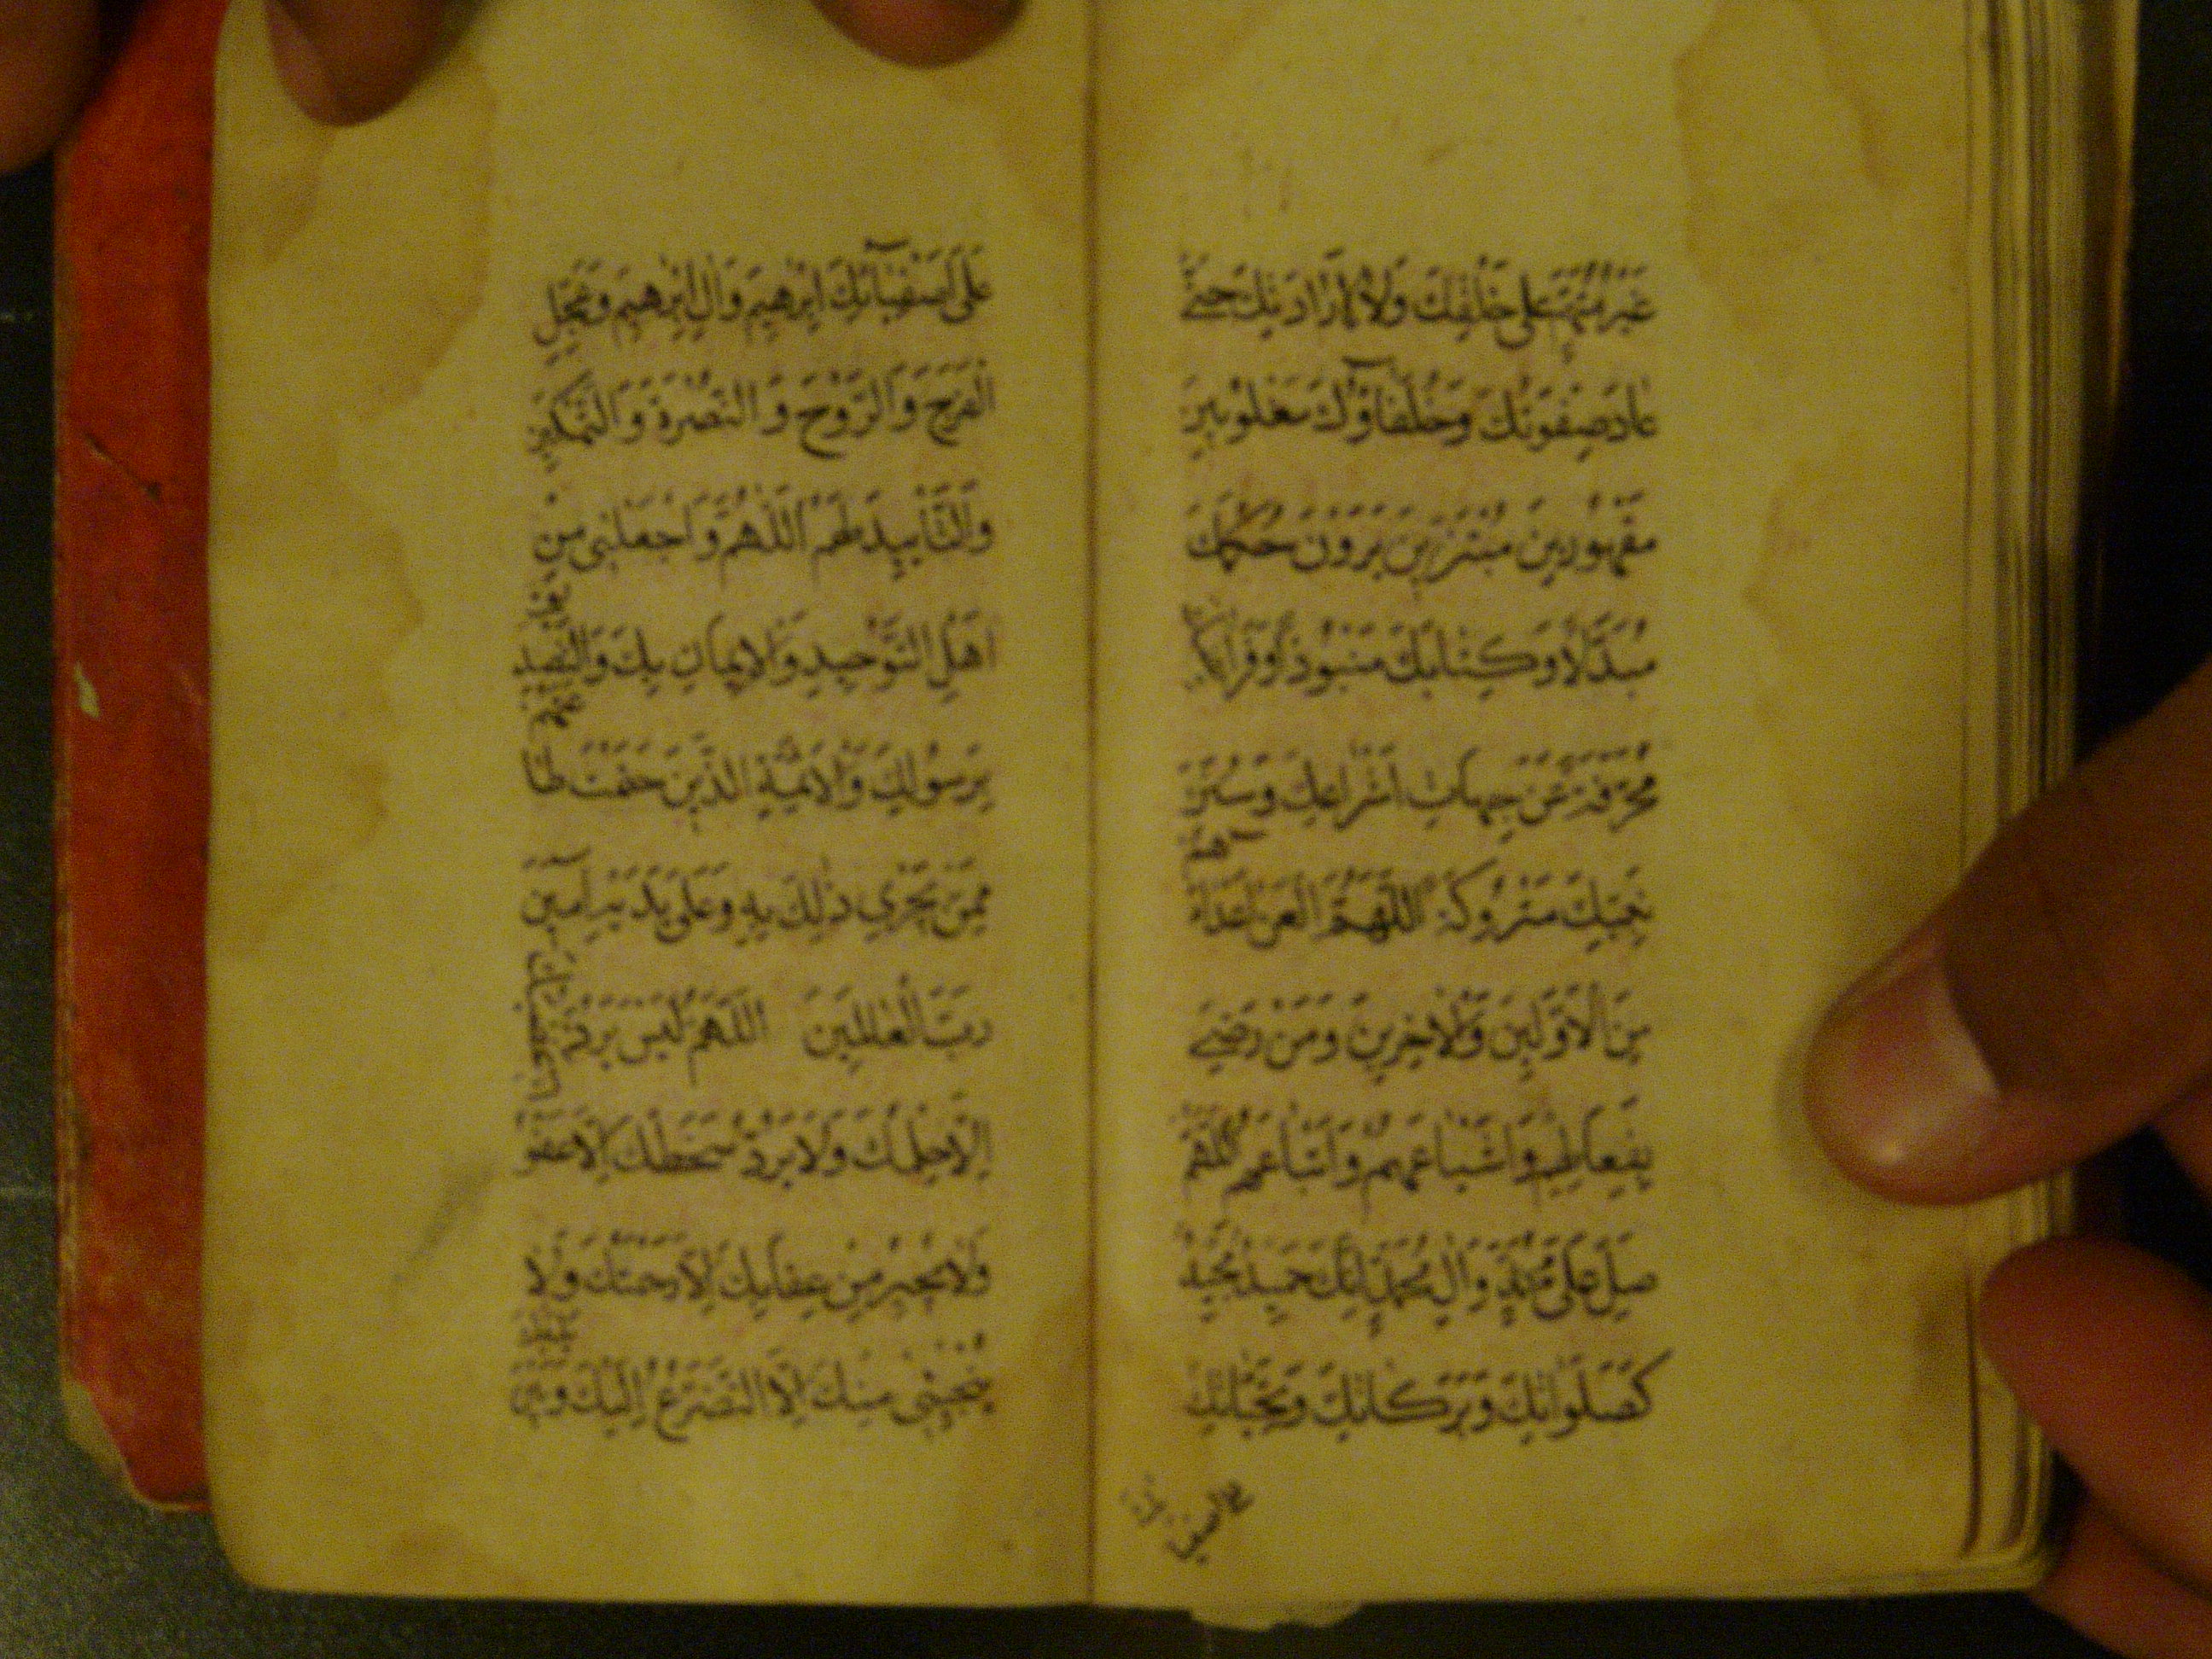 غَيْرُ مُتَّهَمٍ عَلَى خَلْقِكَ وَلَا لِإِرَادَتِكَ حَتَّى
عَادَ صِفْوَتُكَ وَخُلَفَآؤُكَ مَغْلُوبِينَ
مَقْهُورِينَ مُبْتَزِّينَ يَرَوْنَ حُكْمَكَ
مُبَدَّلًا وَكِتَابَكَ مَنْبُوذًا وَفَرَائِضَكَ
مُحَرَّفَةً عَنْ جِهَاتِ أَشْرَاعِكَ وَسُنَنَ
نَبِيِّكَ مَتْرُوكَةً اَللّٰهُمَّ الْعَنْ أَعْدَآءَهُمْ
مِنَ الْأَوَّلِينَ وَالْآخِرِينَ وَمَنْ رَضِيَ
بِفِعَالِهِمْ وَأَشْيَاعَهُمْ وَأَتْبَاعَهُمْ اَللّٰهُمَّ
صَلِّ عَلَى مُحَمَّدٍ وَآلِ مُحَمَّدٍ إِنَّكَ حَمِيدٌ مَجِيدٌ
كَصَلَوَاتِكَ وَبَرَكَاتِكَ وَتَحِيَّاتِكَ
عَلَى أَصْفِيَآئِكَ إِبْرٰهِيمَ وَآلِ إِبْرٰهِيمَ وَعَجِّلِ
الْفَرَجَ وَالرَّوْحَ وَالنُّصْرَةَ وَالتَّمْكِينَ
وَالتَّأْيِيدَ لَهُمْ اَللّٰهُمَّ وَاجْعَلْنِي مِنْ
أَهْلِ التَّوْحِيدِ وَالْإِيمَانِ بِكَ وَالتَّصْدِيقِ
بِرَسُولِكَ وَالْأَئِمَّةِ الَّذِينَ حَتَمْتَ طَا
مِمَّنْ يَجْرِي ذٰلِكَ بِهِ وَعَلَى يَدَيْهِ آمِينَ
رَبَّ الْعَالَمِينَ اَللّٰهُمَّ لَيْسَ يَرُدُّ غَضَبَكَ
إِلَّا حِلْمُكَ وَلَا يَرُدُّ سَخَطَكَ إِلَّا عَفْوُ
وَلَا يُجِيرُ مِنْ عِقَابِكَ إِلَّا رَحْمَتُكَ وَلَا
يُنْجِينِي مِنْكَ إِلَّا التَّضَرُّعُ إِلَيْكَ وَبَيْنَ